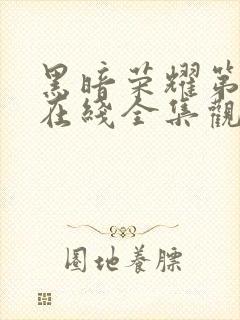 黑暗荣耀第
在綫全集觀
圈地養膘